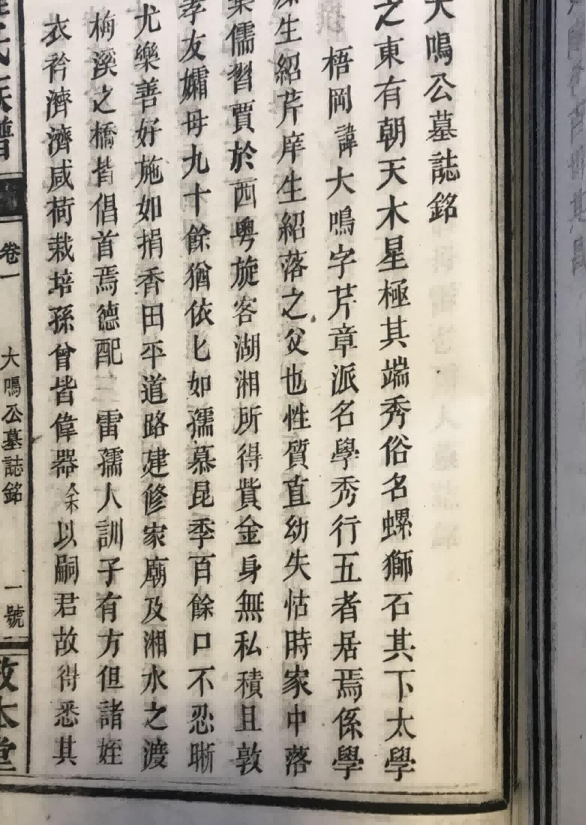 大鳴公墓誌銘
之東有朝天木星極其端秀俗名螺獅石其下太學
梧岡諱大鳴字芹章派名學秀行五者居焉係學
生紹芹庠生紹落之父也性質直幼失怙時家中落
儒習賈於西粵旋客湖湘所得貲金身無私積且敦
孝友孀母九十餘猶依匕如孺慕昆季百餘口不忍晰
尤樂善好施如捐香田平道路建修家廟及湘水之渡
梅溪之橋皆倡首焉德配 雷孺人訓子有方但諸姪
衣衿濟濟咸荷栽培孫曾皆偉器余以嗣君故得悉其
氏族譜 卷一 大鳴公墓誌銘 一號 敦本堂